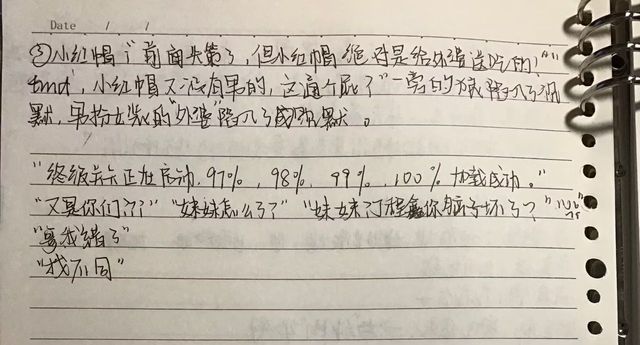 Date / /
③小红帽:"前面失策了,但小红帽绝对是给外婆送吃的,""
tmd,小红帽又没有男的,这通个屁了"一旁的狼陷入了沉
默,男扮女装的"外婆"陷入了沉默。
"终级兵示正在启动,97%,98%,99%,100%加载成功。"
"又是你们???""妹妹怎么了?""妹妹?,你脑子坏了?"
"拿我错了"
"找不同"